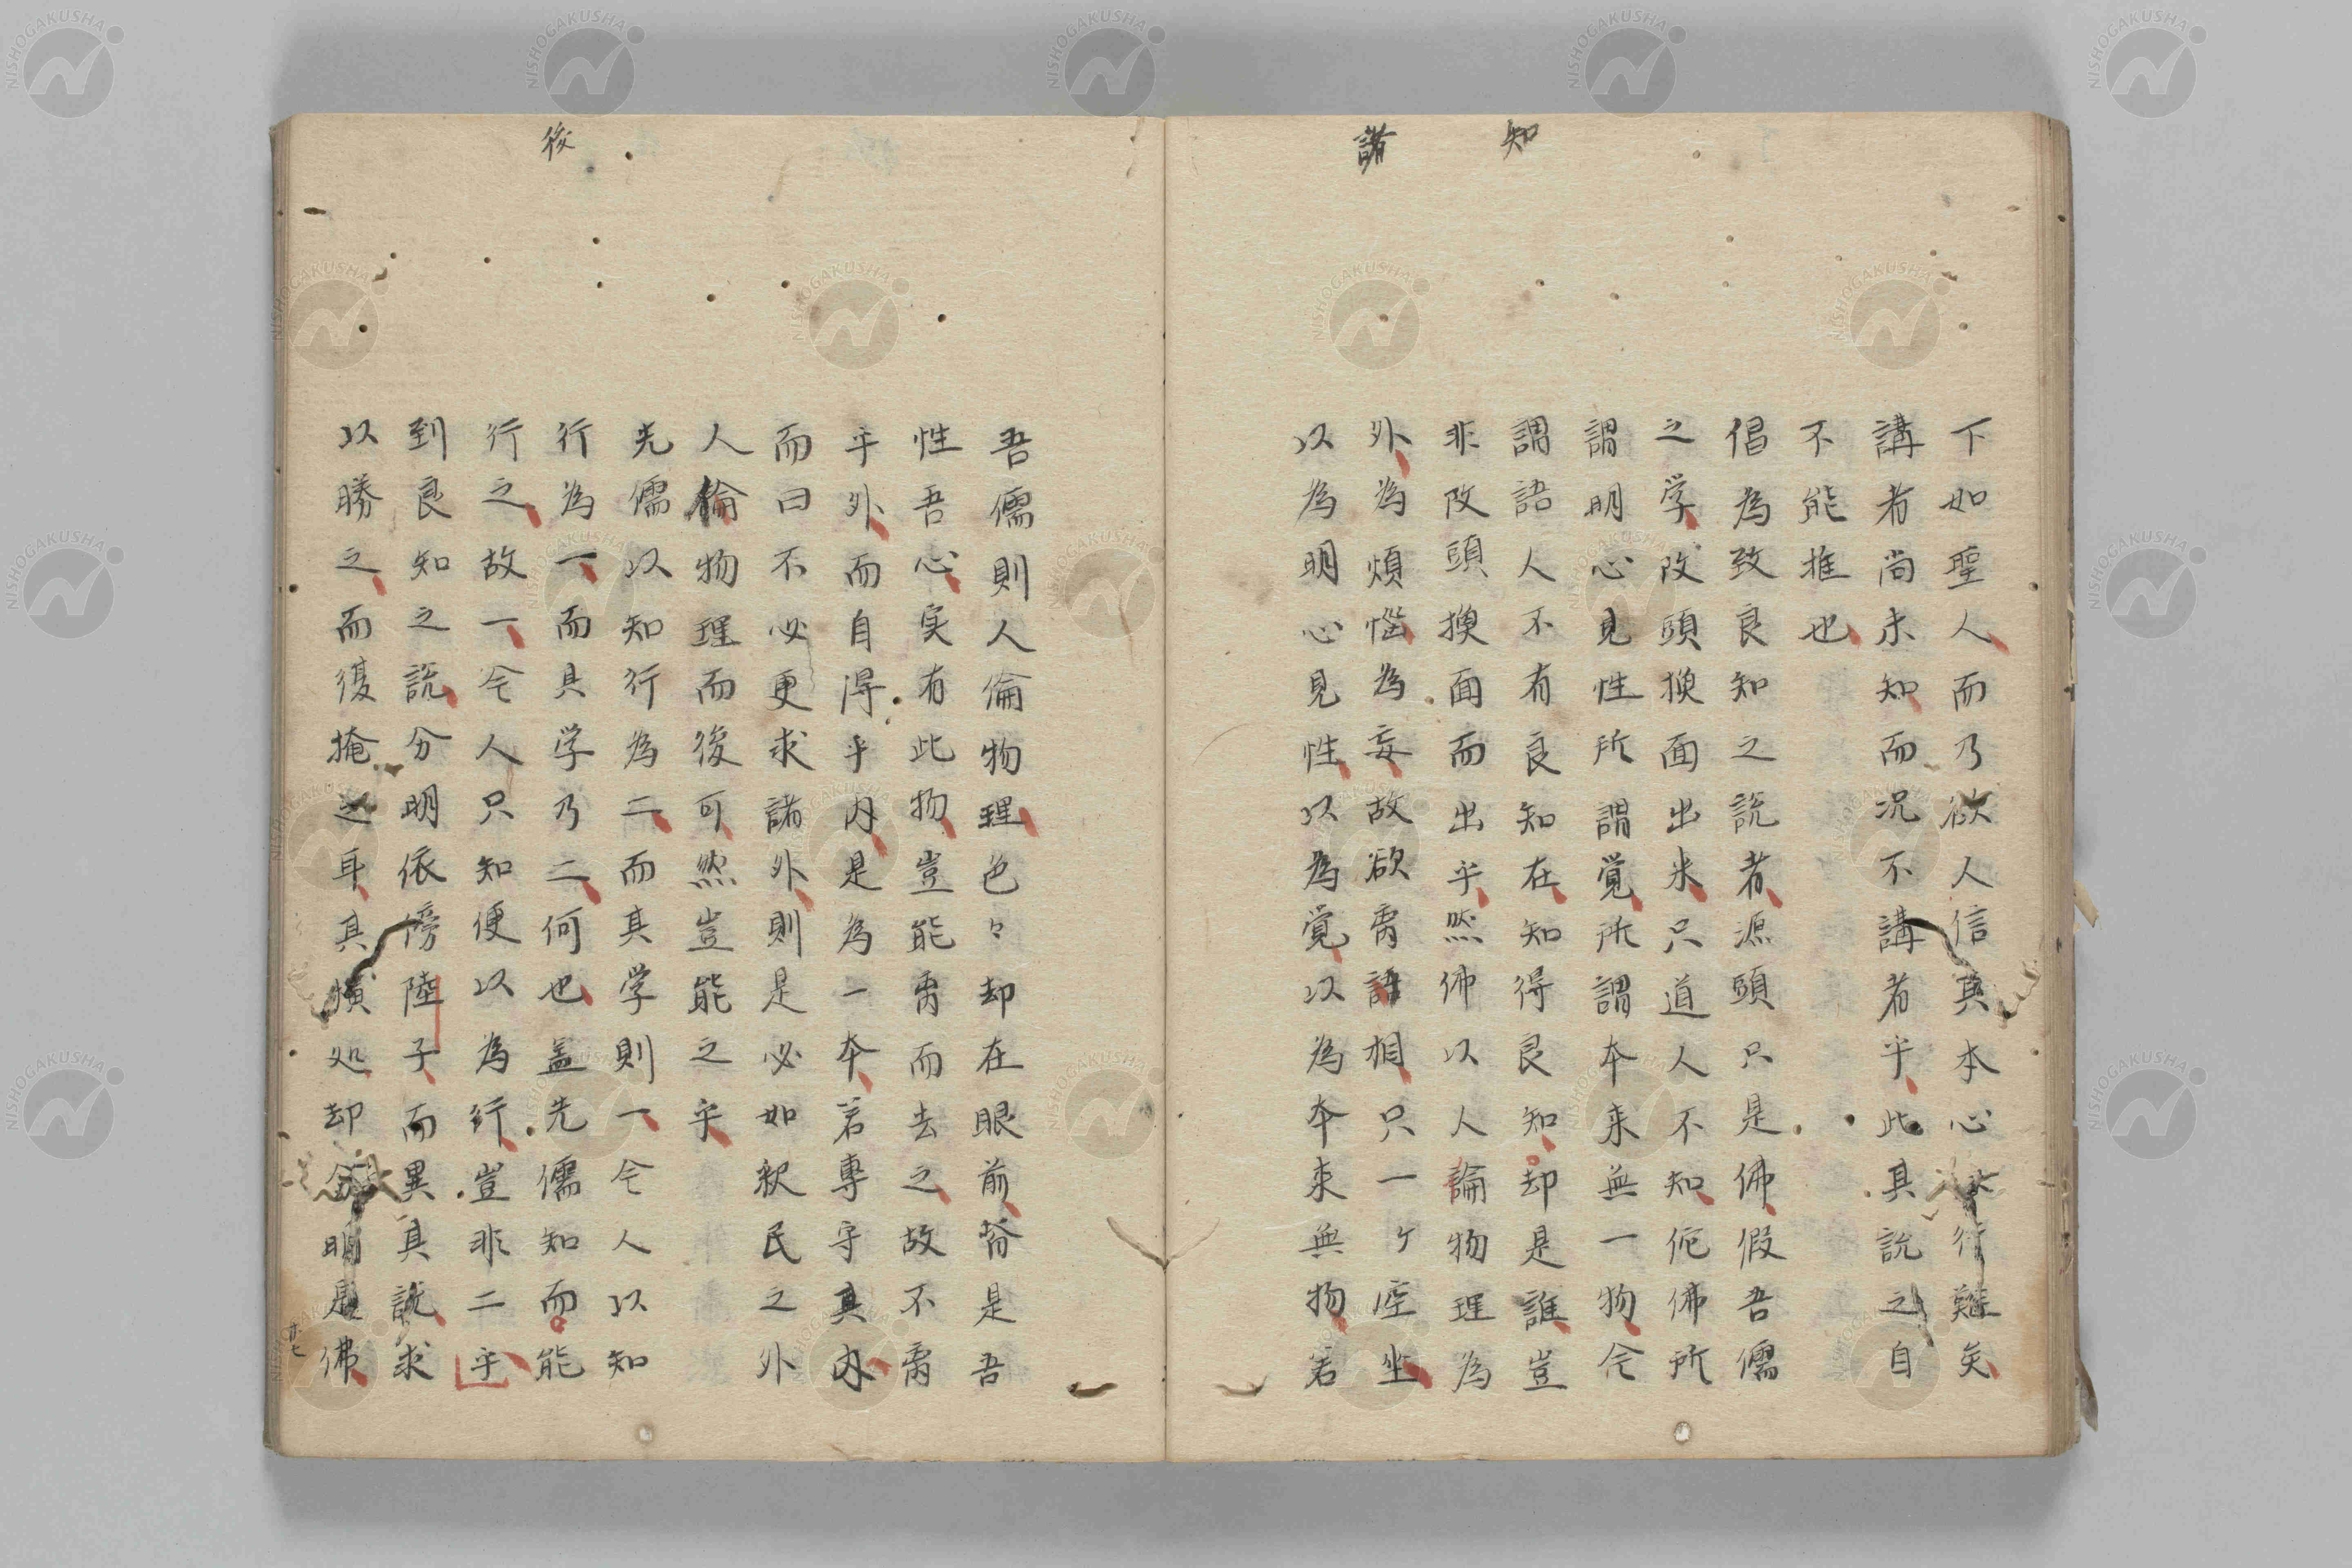 知
諸
下如聖人而乃欲人信其本心行難矣
講者尚未知而况不講者乎此其説之自
不能推也
倡為致良知之説者源頭只是佛假吾儒
之学改頭換面出来只道人不知佗佛所
謂明心見性所謂覚所謂本来無一物今
謂語人不有良知在知得良知却是誰豈
非改頭換面而出乎然佛以人論物理為
外為煩悩為妄故欲屏諸相只一ケ空坐
以為明心見性以為覚以為本来無物若
後
吾儒則人倫物理色々却在眼前皆是吾
性吾心実有此物豈能屏而去之故不屏
乎外而自得乎内是為一本若專守其内
而曰不必更求諸外則是必如釈民之外
人倫物理而後可然豈能之乎
先儒以知行為二而其学則一今人以知
行為一而其学乃二何也盖先儒知而能
行之故一今人只知便以為行豈非二乎
到良知之説分明依傍陸子而異其説求
以勝之而復掩之耳其横処却分明是佛
廿七
NISHOGAKUSHA